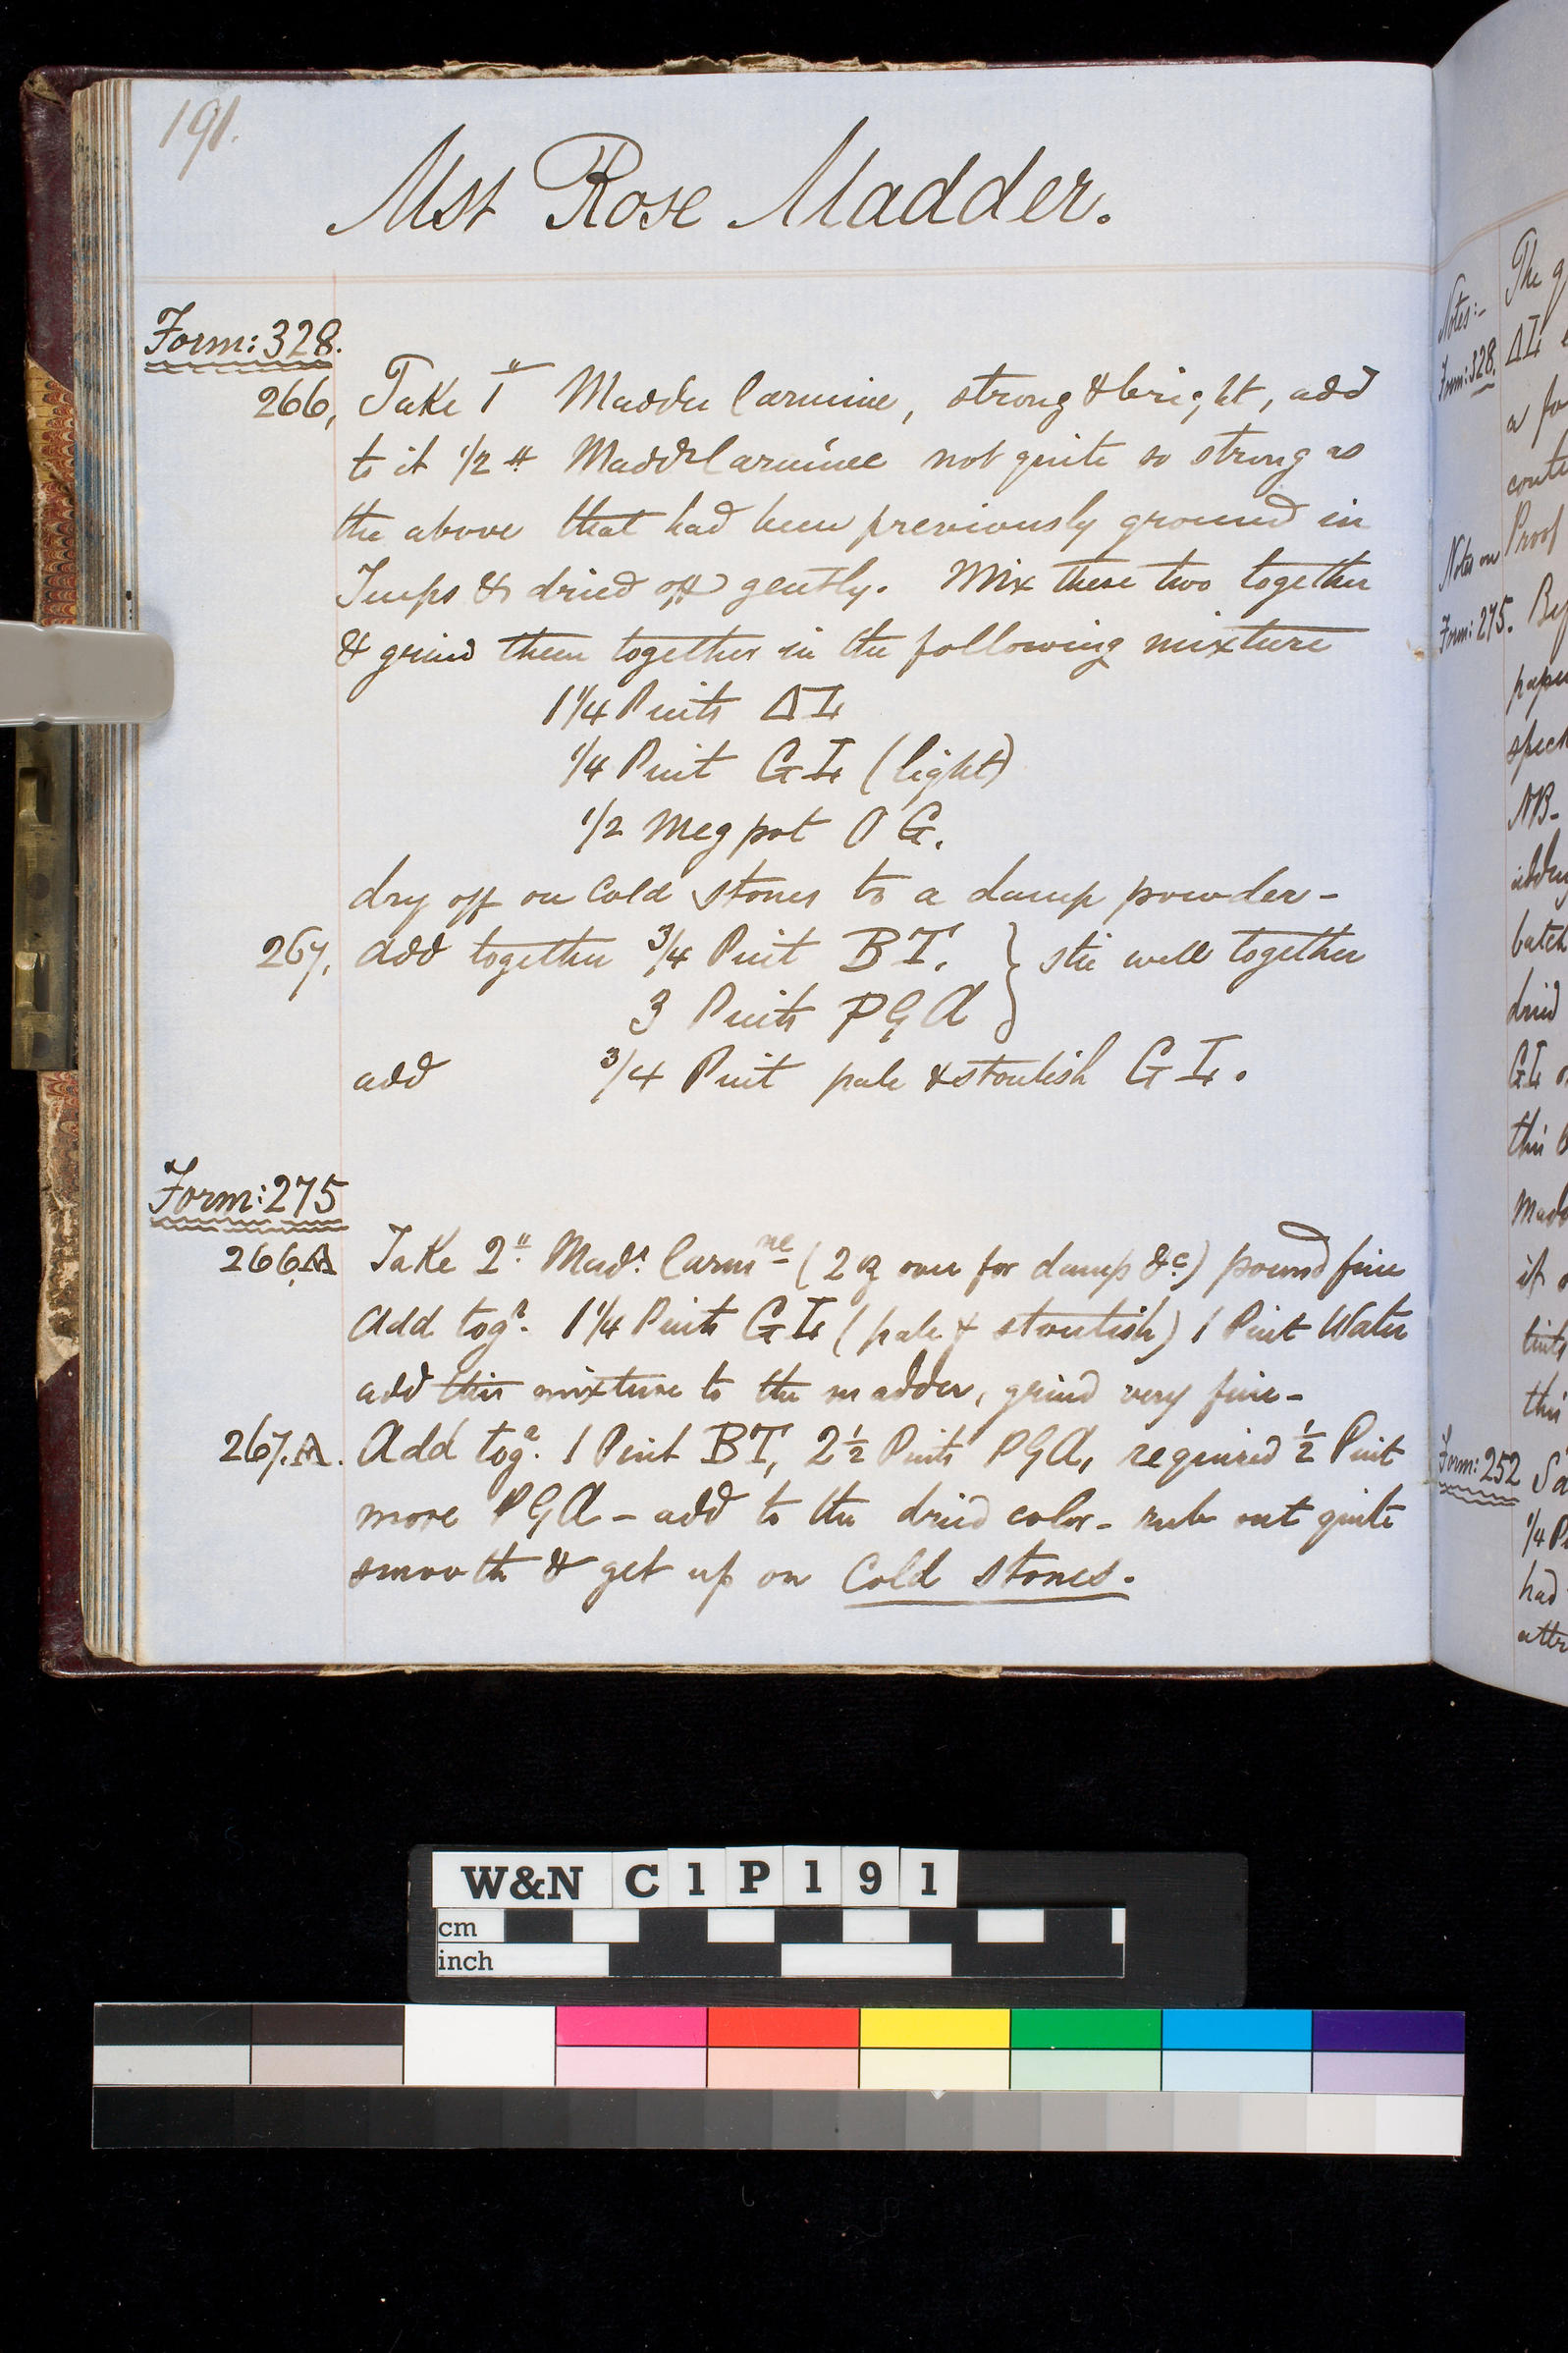 191.
Mst Rose Madder.
Form: 328.
266, Take 1" Madder Carmine, strong & bright, add
to it 1/2 " Maddr Carmine not quite so strong as
the above that had been previously ground in
Turps & dried off gently. Mix these two together
& grind them together in the following mixture
1 1/4 Pints ΔI
1/4 Pint GI (light)
1/2 Meg pot O G.
dry off on Cold stones to a damp powder-
267. add together 3/4 Pint BT. } stir well together
3 Pints PGA
add 3/4 Pint pale & stoutish GI.
Form: 275
266.A Take 2" Madr. Carmne (2 oz over for damp &c) pound fine
Add togr. 1 1/4 Pints GI (pale & stoutish) 1 Pint Water
add this mixture to the madder, grind very fine-
267.A. Add togr. 1 Pint BT, 2 1/2 Pints PGA, required 1/2 Pint
more PGA - add to the dried color - rub out quite
smooth & get up on Cold stones.
Notes:- The
Form: 328. ΔI
a
Notes on Proof
Form: 275.
NB-
batch
dried
GI
it
tints
Form: 252
1/4
had
W&N C1P191
cm
inch